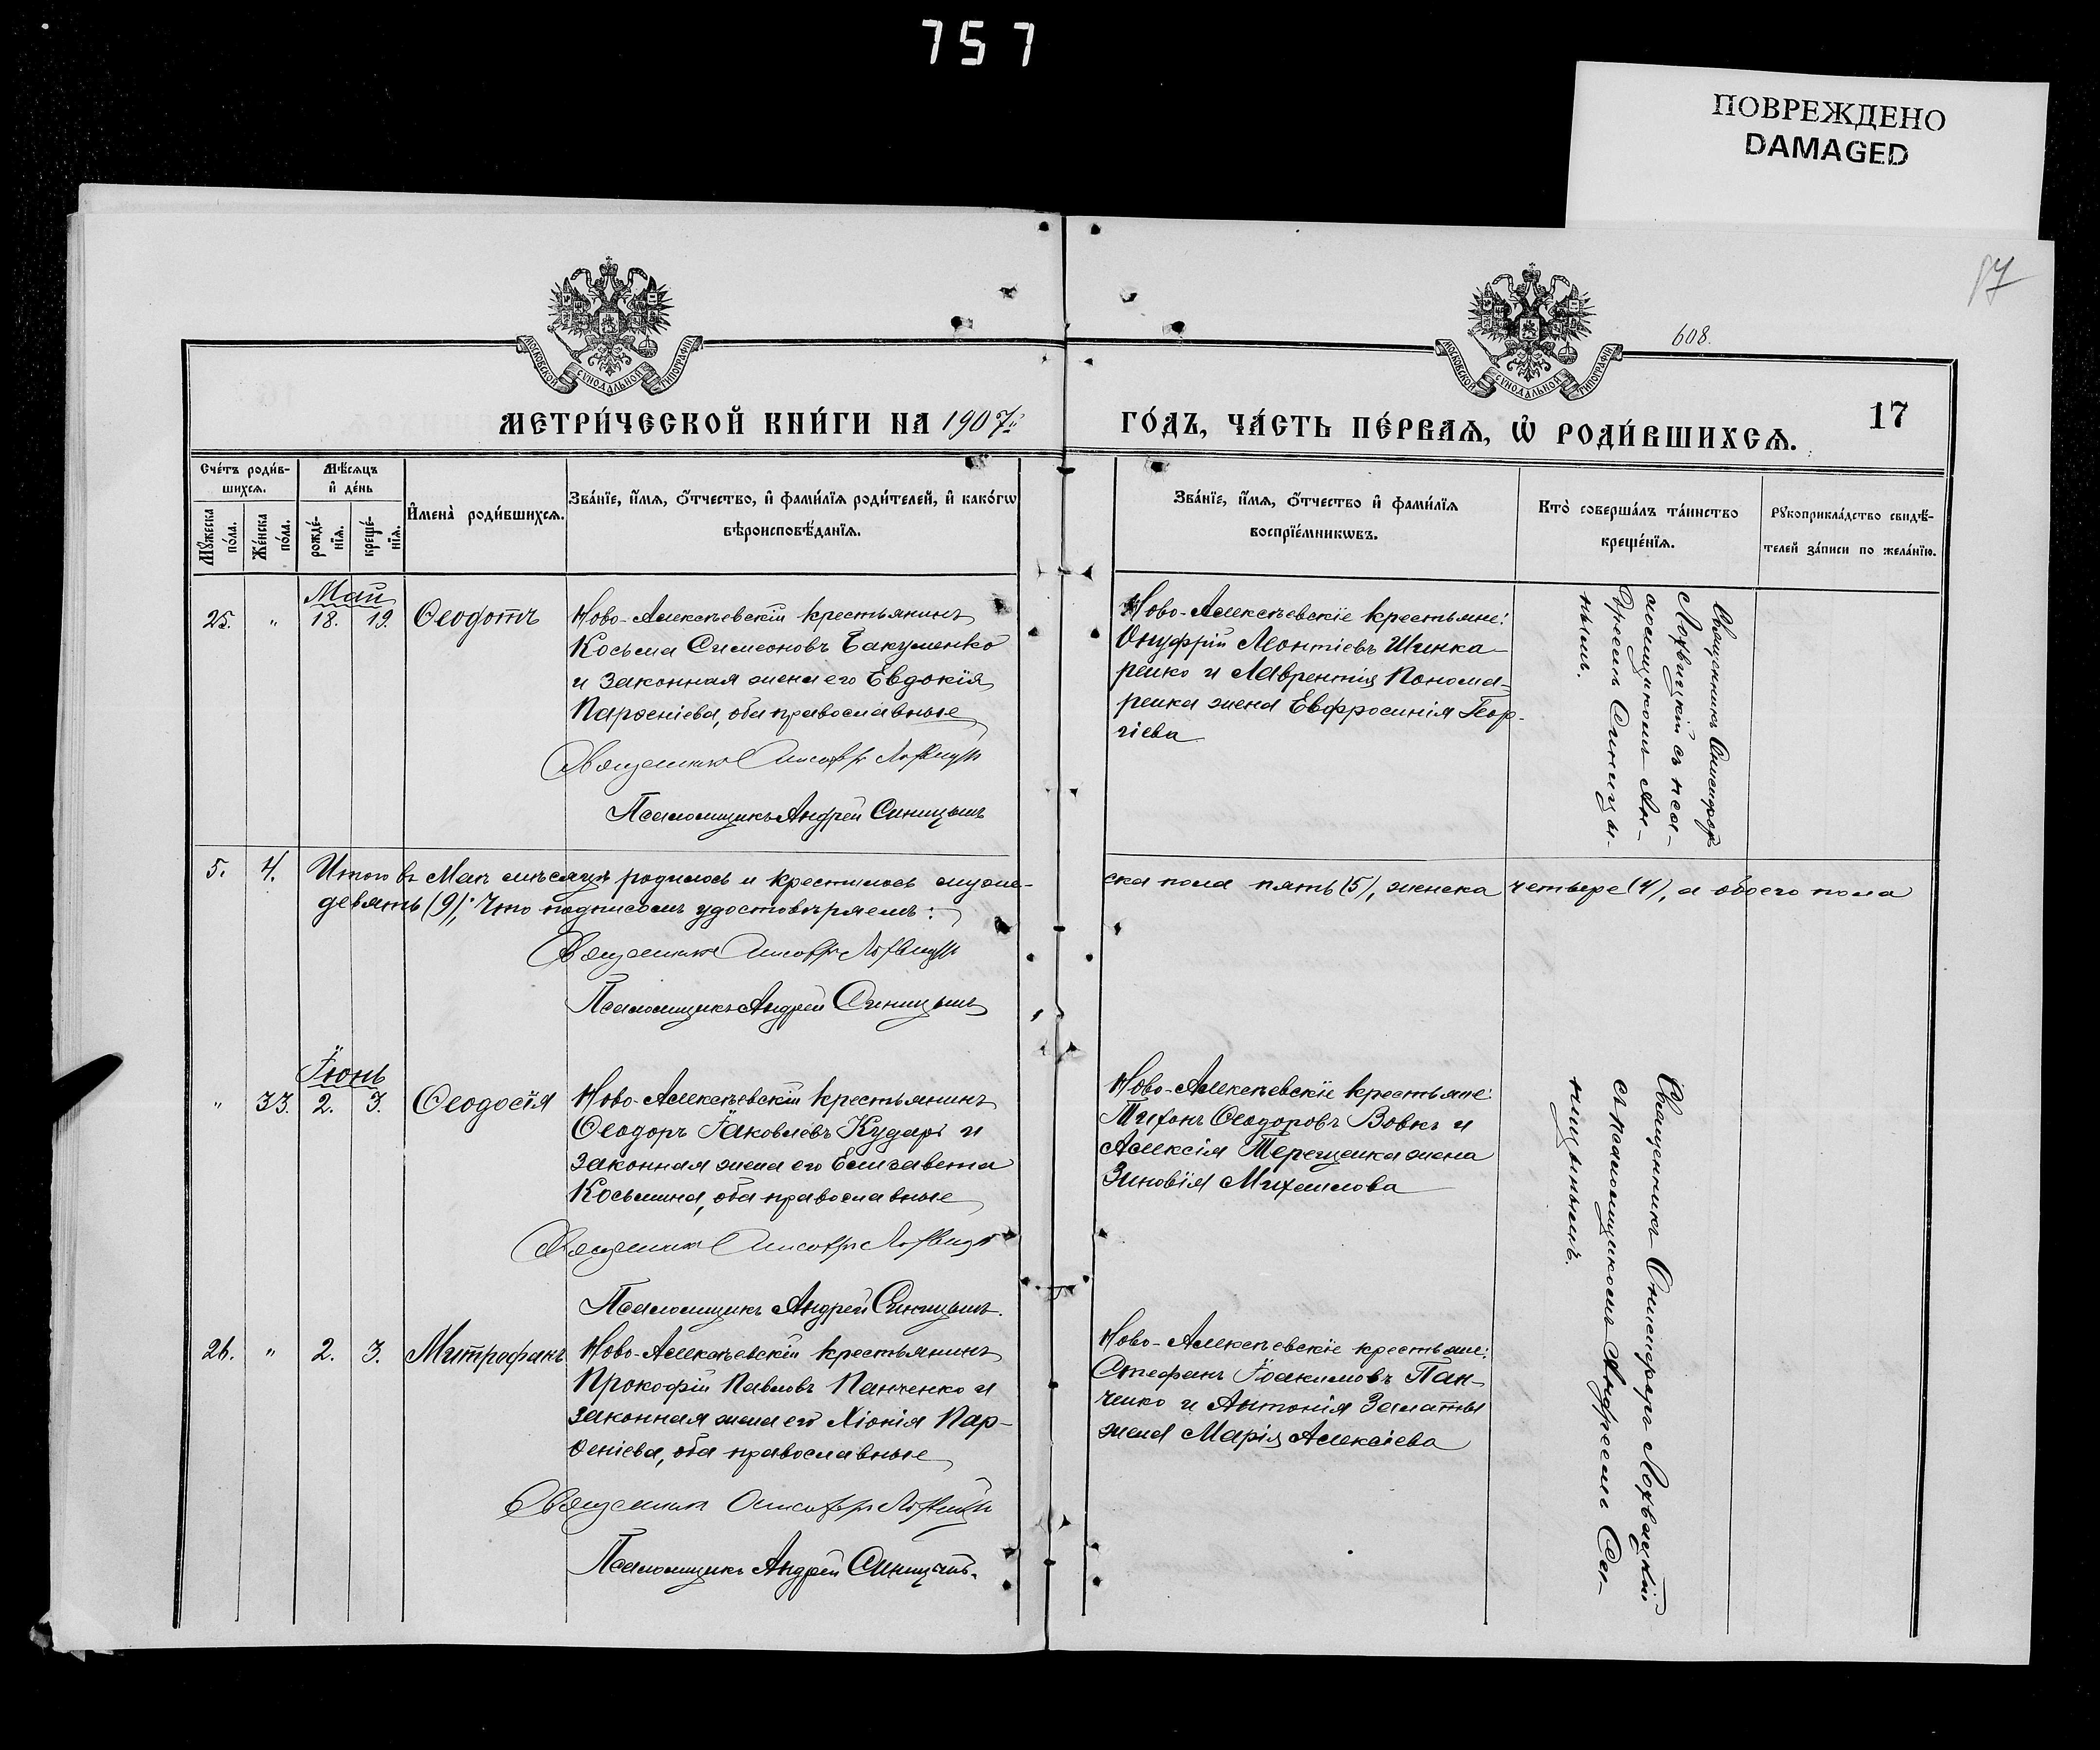 757
ПОВРЕЖДЕНО
DAMAGED
17
608.
МОСКОВСКОЙ СѴНОДАЛЬНОЙ ТИПОГРАФІИ
МОСКОВСКОЙ СѴНОДАЛЬНОЙ ТИПОГРАФІИ
МЕТРИ́ЧЕСКОЙ КНИ́ГИ НА 1907й
ГО́ДЪ, ЧА́СТЬ ПЕ́РВАѦ, Ѡ҆ РОДИ́ВШИХСѦ.
17
Сче́тъ роди́в-
шихсѧ.
Мꙋ́жеска по́ла.
Же́нска по́ла.
Мѣ́сѧцъ
и҆ де́нь
рожде́-
нїѧ.
креще́-
нїѧ.
И҆мена̀ роди́вшихсѧ.
Зва́нїе, и҆́мѧ, ѻ҆́тчество, и҆ фами́лїѧ роди́телей, и҆ како́гѡ
вѣроисповѣ́данїѧ.
Зва́нїе, и҆́мѧ, ѻ҆́тчество и҆ фами́лїѧ
воспрїе́мникѡвъ.
Кто̀ соверша́лъ та́инство
креще́нїѧ.
Рꙋкоприкла́дство свидѣ́-
телей за́писи по жела́нїю.
Май
25. " 18. 19. Ѳеодотъ
Ново-Алексѣевскій крестьянинъ
Косьма Симеоновъ Бакуменко
и законная жена его Евдокія
Парѳеніева, оба православные
Священникъ Онисифоръ Лохвицкій
Псаломщикъ Андрей Синицынъ
Ново-Алексѣевскіе крестьяне:
Онуфрій Леонтіевъ Шинка-
ренко и Лаврентія Понома-
ренка жена Евфросинія Геор-
гіева
Священникъ Онисифоръ
Лохвицкій съ пса-
ломщикомъ Ан-
дреемъ Синицы-
нымъ.
5. 4. Итого въ Маѣ мѣсяцѣ родилось и крестилось муже-
ска пола пять (5), женска четыре (4), а обоего пола
девять (9); Что подписомъ удостовѣряемъ:
Священникъ Онисифоръ Лохвицкій
Псаломщикъ Андрей Синицынъ
Іюнь
" 33. 2. 3. Ѳеодосія
Ново-Алексѣевскій крестьянинъ
Ѳеодоръ Іаковлевъ Кударь и
законная жена его Елисавета
Косьмина, оба православные
Священникъ Онисифоръ Лохвицкій
Псаломщикъ Андрей Синицынъ.
Ново-Алексѣевскіе крестьяне:
Тихонъ Ѳеодоровъ Вовкъ и
Алексія Терещенка жена
Зиновія Михаилова
Священникъ Онисифоръ Лохвицкій
съ псаломщикомъ Андреемъ Си-
ницынымъ.
26. " 2. 3. Митрофанъ
Ново-Алексѣевскій крестьянинъ
Прокофій Павловъ Панченко и
законная жена его Хіонія Пар-
ѳеніева, оба православные
Священникъ Онисифоръ Лохвицкій
Псаломщикъ Андрей Синицынъ.
Ново-Алексѣевскіе крестьяне:
Стефанъ Іоакимовъ Пан-
ченко и Антонія Заматы
жена Марія Алексіева